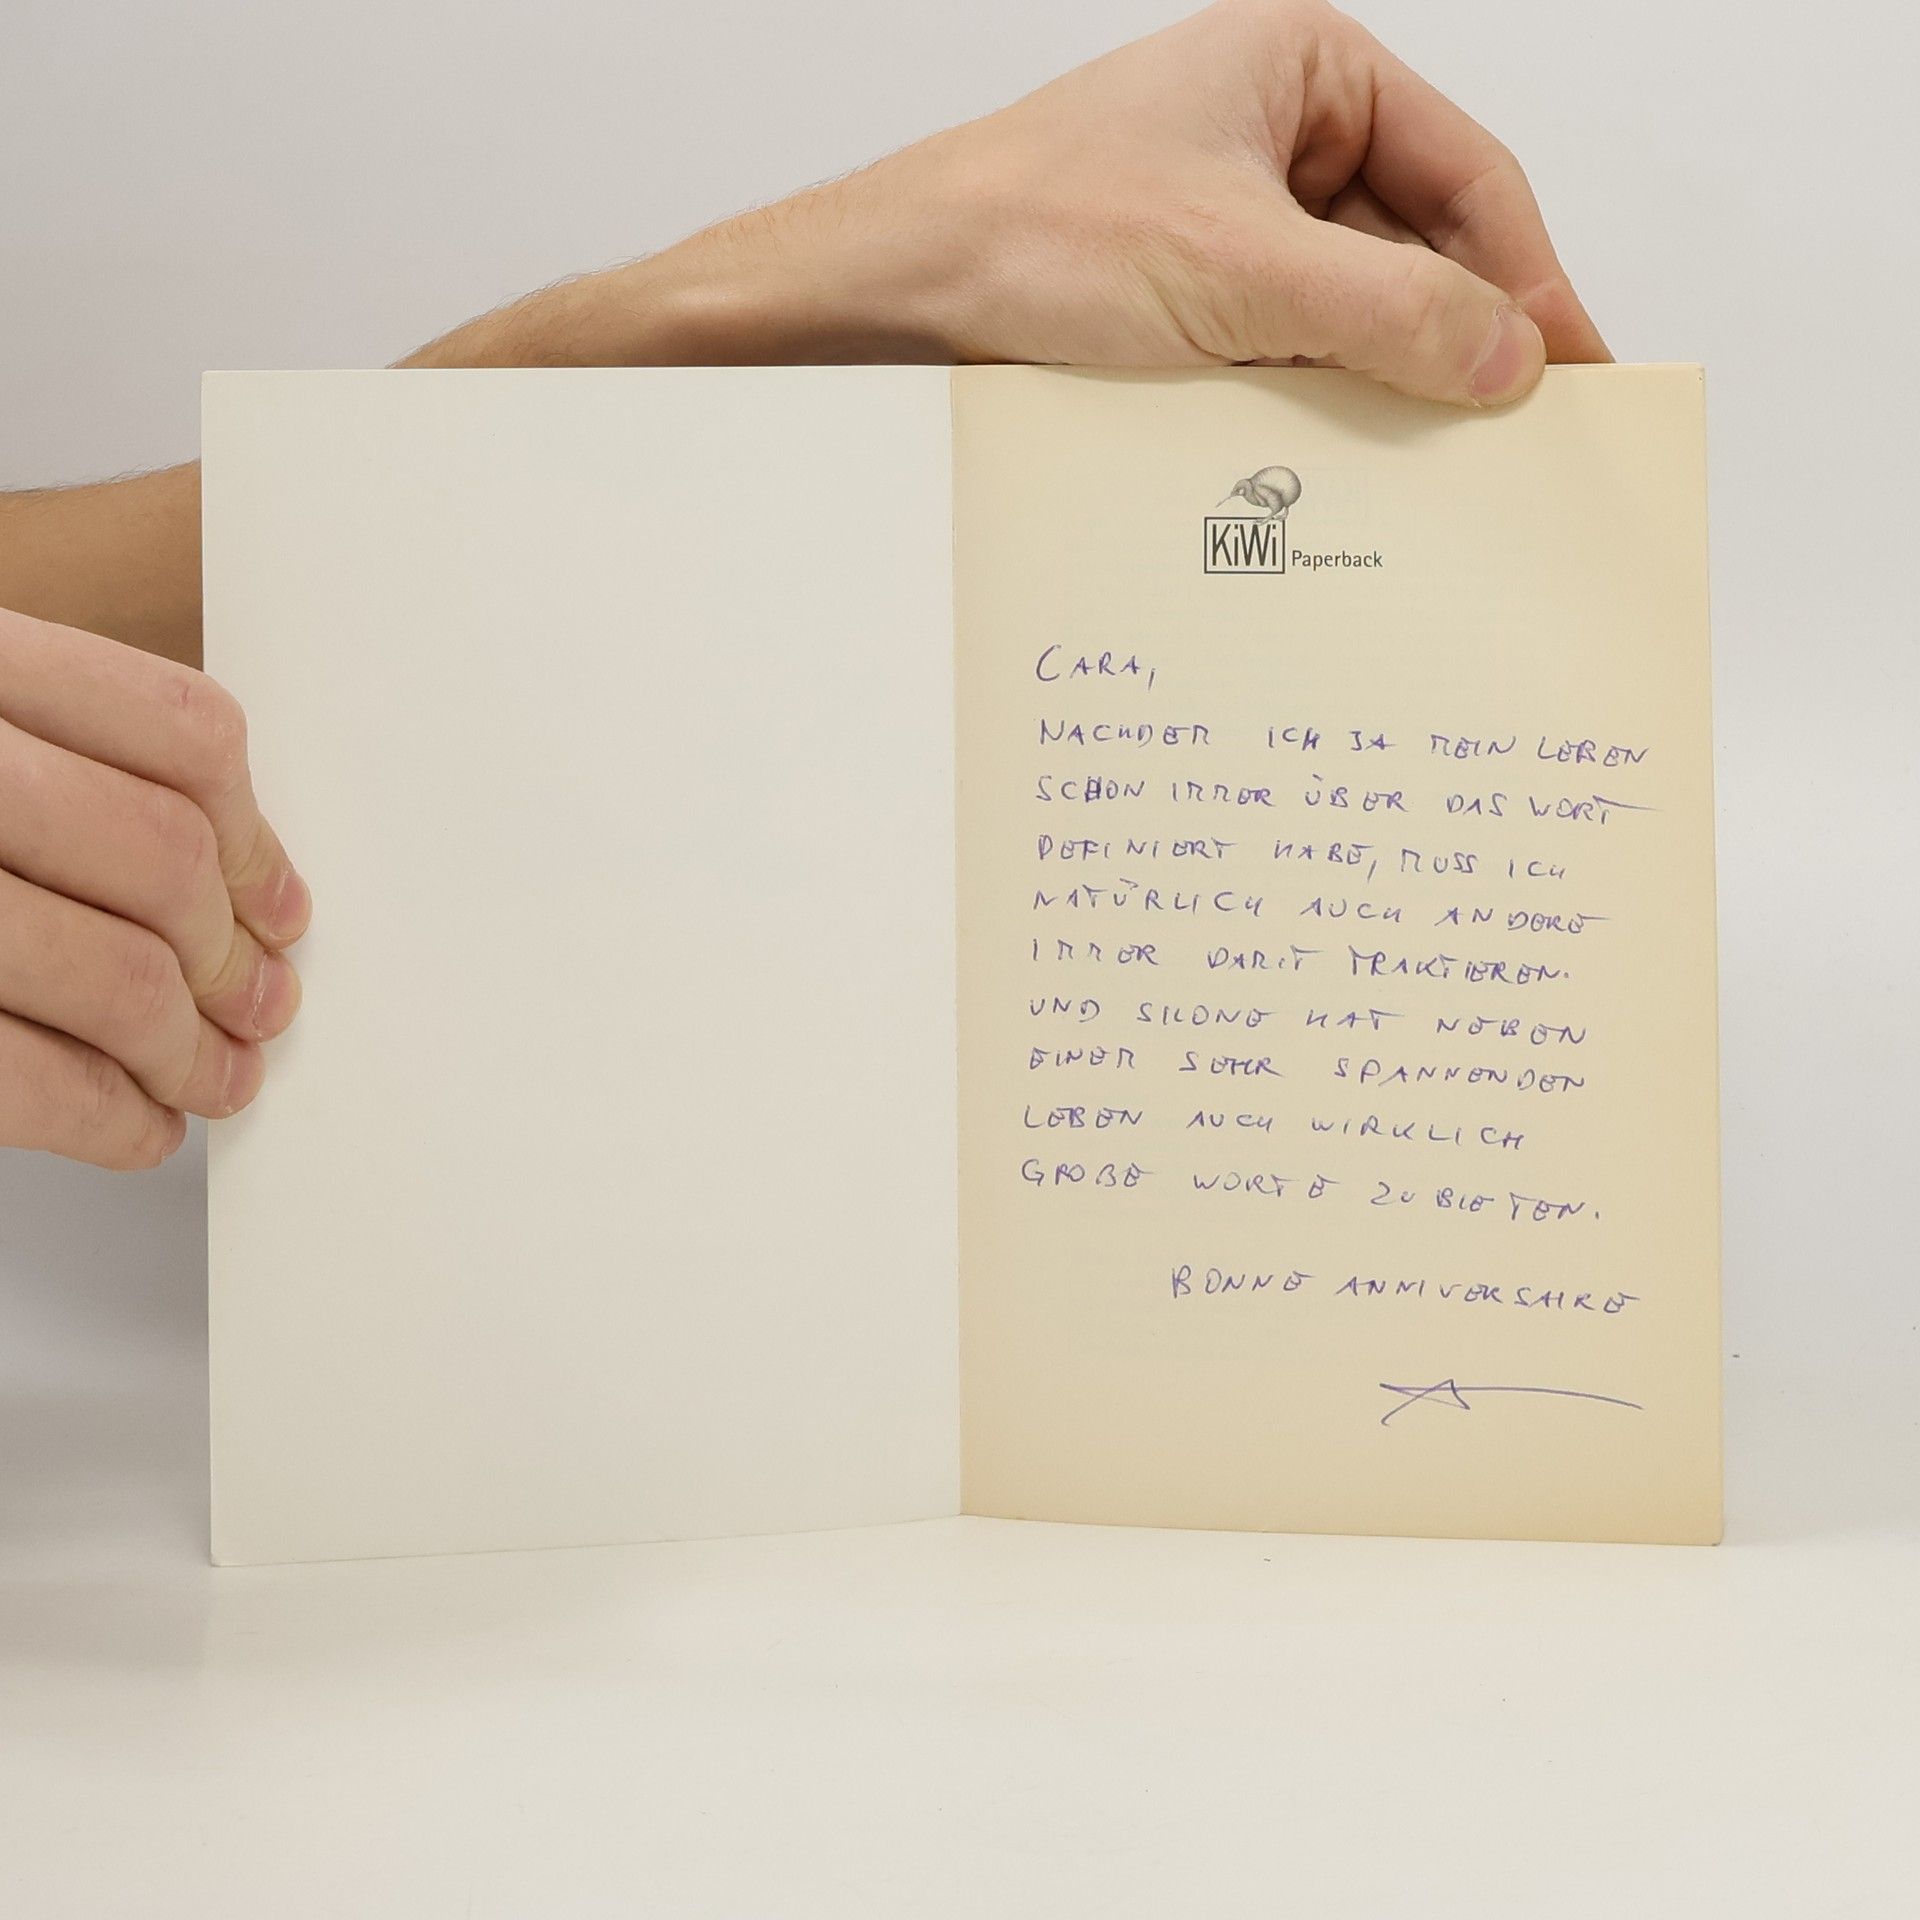 KiWi Paperback
CARA,
NACHDEM ICH JA MEIN LEBEN
SCHON IMMER ÜBER DAS WORT
DEFINIERT HABE, MUSS ICH
NATÜRLICH AUCH ANDERE
IMMER DAMIT TRAKTIEREN.
UND SILONE HAT NEBEN
EINEM SEHR SPANNENDEN
LEBEN AUCH WIRKLICH
GROßE WORTE ZU BIETEN.
BONNE ANNIVERSAIRE